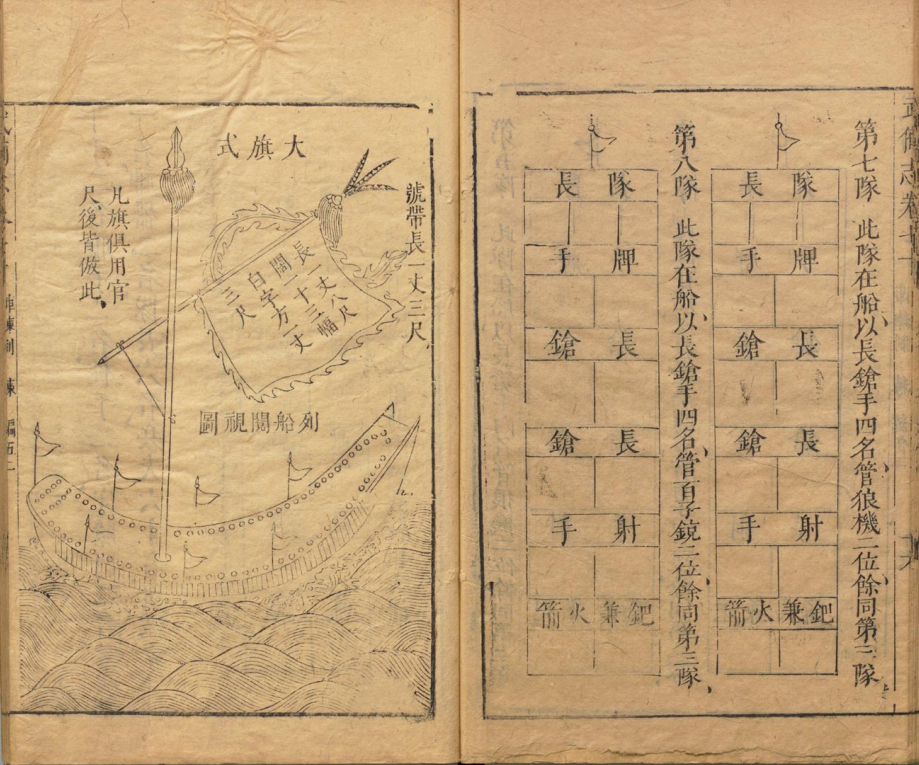 武備志卷七十
第七隊 此隊在船以長鎗手四名管狼機二位餘同第三隊
隊長
牌手
長鎗
長鎗
射手
鈀兼火箭
第八隊 此隊在船以長鎗手四名管百子銃二位餘同第三隊
隊長
牌手
長鎗
長鎗
射手
鈀兼火箭
號帶長一丈三尺
大旗式
長一丈八尺
闊一十三幅
白字方一丈
三尺
凡旗俱用官
尺後皆倣此
列船闊視圖